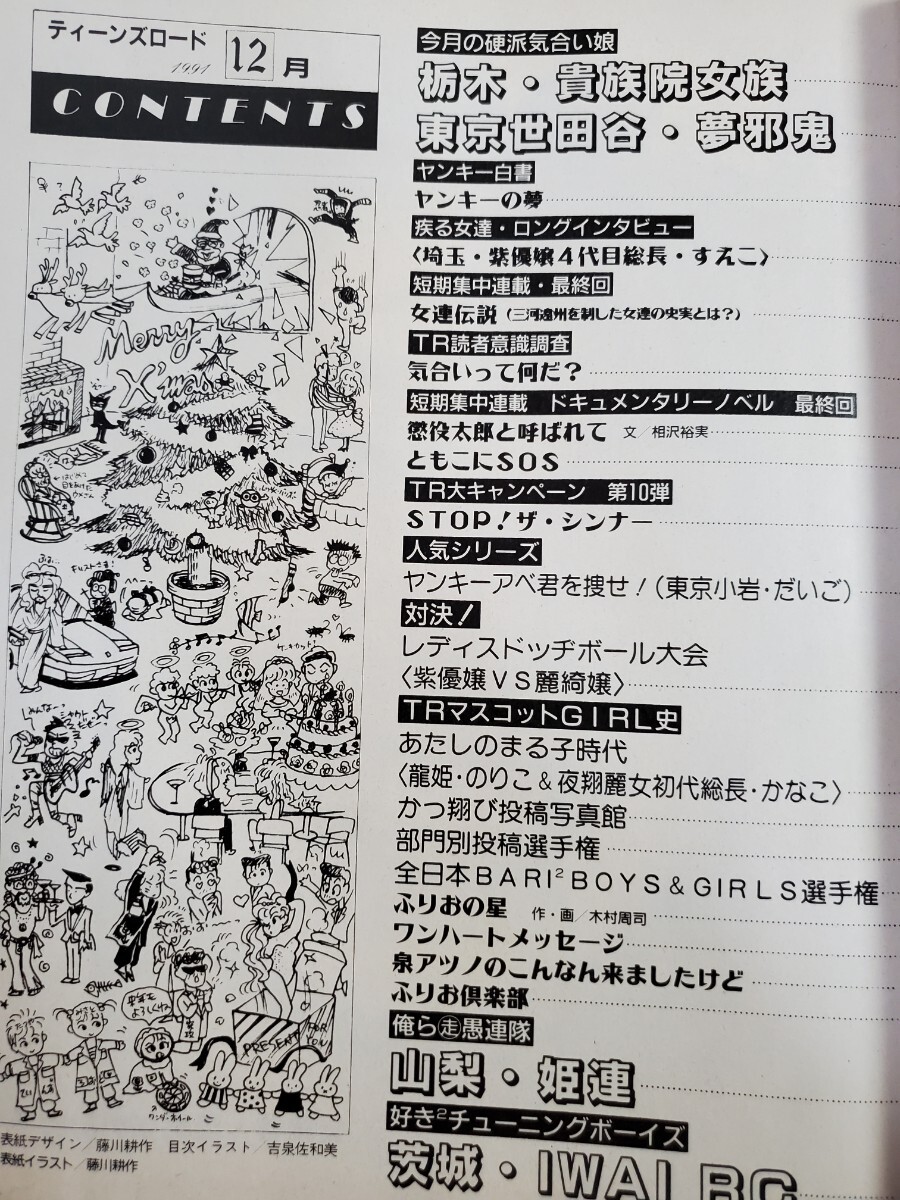 ティーンズロード
1991 12月
CONTENTS
Merry
X'mas
キリストさま!
ケーキカット!
PRESENT FOR YOU
来年もよろしくね
ワンダーホイール
表紙デザイン/藤川耕作 目次イラスト/吉泉佐和美
表紙イラスト/藤川耕作
今月の硬派気合い娘
栃木・貴族院女族
東京世田谷・夢邪鬼
ヤンキー白書
ヤンキーの夢
疾る女達・ロングインタビュー
〈埼玉・紫優嬢4代目総長・すえこ〉
短期集中連載・最終回
女連伝説(三河遠州を制した女達の史実とは?)
TR読者意識調査
気合いって何だ?
短期集中連載 ドキュメンタリーノベル 最終回
懲役太郎と呼ばれて 文/相沢裕実
ともこにSOS
TR大キャンペーン 第10弾
STOP!ザ・シンナー
人気シリーズ
ヤンキーアベ君を捜せ!(東京小岩・だいご)
対決!
レディスドッヂボール大会
〈紫優嬢VS麗綺嬢〉
TRマスコットGIRL史
あたしのまる子時代
〈龍姫・のりこ&夜翔麗女初代総長・かなこ〉
かっ翔び投稿写真館
部門別投稿選手権
全日本BARI²BOYS&GIRLS選手権
ふりおの星 作・画/木村周司
ワンハートメッセージ
泉アツノのこんなん来ましたけど
ふりお倶楽部
俺ら㊣愚連隊
山梨・姫連
好き²チューニングボーイズ
茨城・IWAI RC